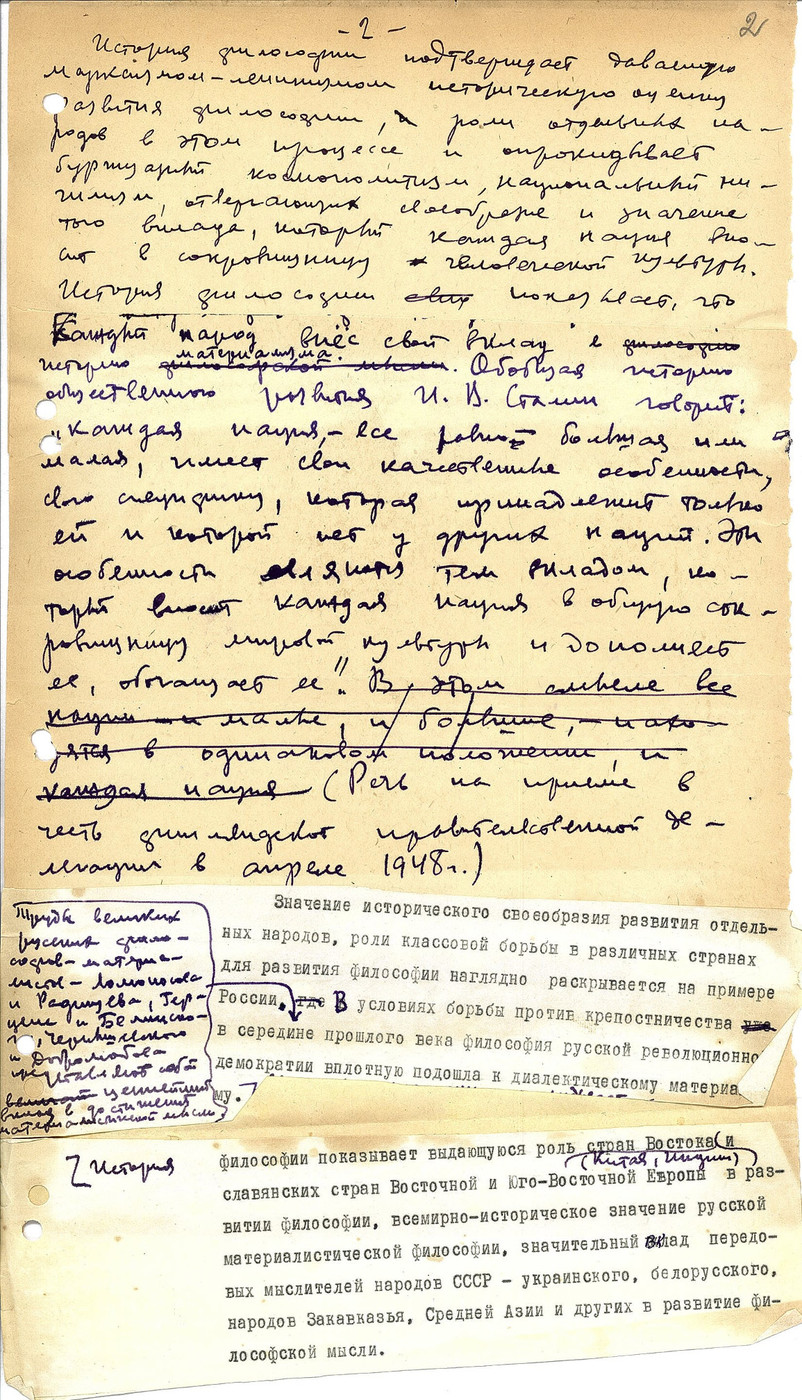 - 2 -
2
История философии подтверждает даваемую
марксизмом-ленинизмом историческую оценку
развития философии, и роли отдельных на-
родов в этом процессе и опрокидывает
буржуазный космополитизм, национальный ни-
гилизм, отвергающих своеобразие и значение
того вклада, который каждая нация вно-
сит в сокровищницу человеческой культуры.
История философии показывает, что
Каждый народ внёс свой вклад в философию
материализма.
историю философской мысли. Обобщая историю
общественного развития И. В. Сталин говорит:
"Каждая нация, - все равно - большая или
малая, имеет свои качественные особенности,
свою специфику, которая принадлежит только
ей и которой нет у других наций. Эти
особенности являются тем вкладом, ко-
торый вносит каждая нация в общую сок-
ровищницу мировой культуры и дополняет
ее, обогащает ее". В этом смысле все
нации - и малые, и большие, - нахо-
дятся в одинаковом положении, и
каждая нация (Речь на приеме в
честь финляндской правительственной де-
легации в апреле 1948 г.)
Труды великих
русских фило-
софов-материа-
листов - Ломоносова
и Радищева, Гер-
цена и Белинско-
го, Чернышевского
и Добролюбова
представляют собой
ценнейший
вклад в достижения
материалистической мысли
Значение исторического своеобразия развития отдель-
ных народов, роли классовой борьбы в различных странах
для развития философии наглядно раскрывается на примере
России, где В условиях борьбы против крепостничества уже
в середине прошлого века философия русской революционно
демократии вплотную подошла к диалектическому материа
му.
[История философии показывает выдающуюся роль стран Востока и
(Китая, Индии)
славянских стран Восточной и Юго-Восточной Европы в раз-
витии философии, всемирно-историческое значение русской
материалистической философии, значительный вклад передо-
вых мыслителей народов СССР - украинского, белорусского,
народов Закавказья, Средней Азии и других в развитие фи-
лософской мысли.